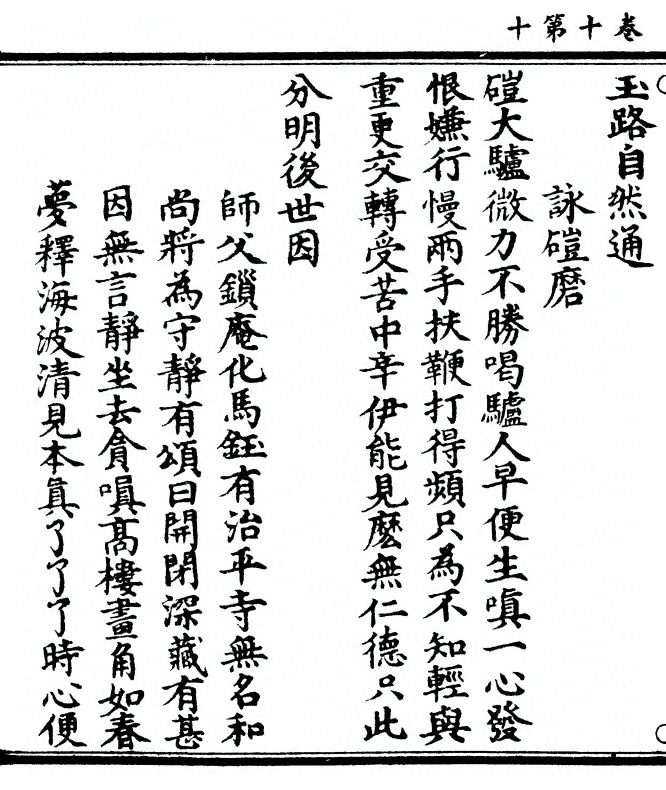 卷十第十
玉路自然通
詠磑磨
磑大驢微力不勝喝驢人早便生嗔一心發
恨嫌行慢兩手扶鞭打得頻只為不知輕與
重更交轉受苦中辛伊能見麼無仁德只此
分明後世因
師父鎖庵化馬鈺有治平寺無名和
尚將為守靜有頌曰開閉深藏有甚
因無言靜坐去貪嗔高樓畫角如春
夢釋海波清見本真了了了時心便